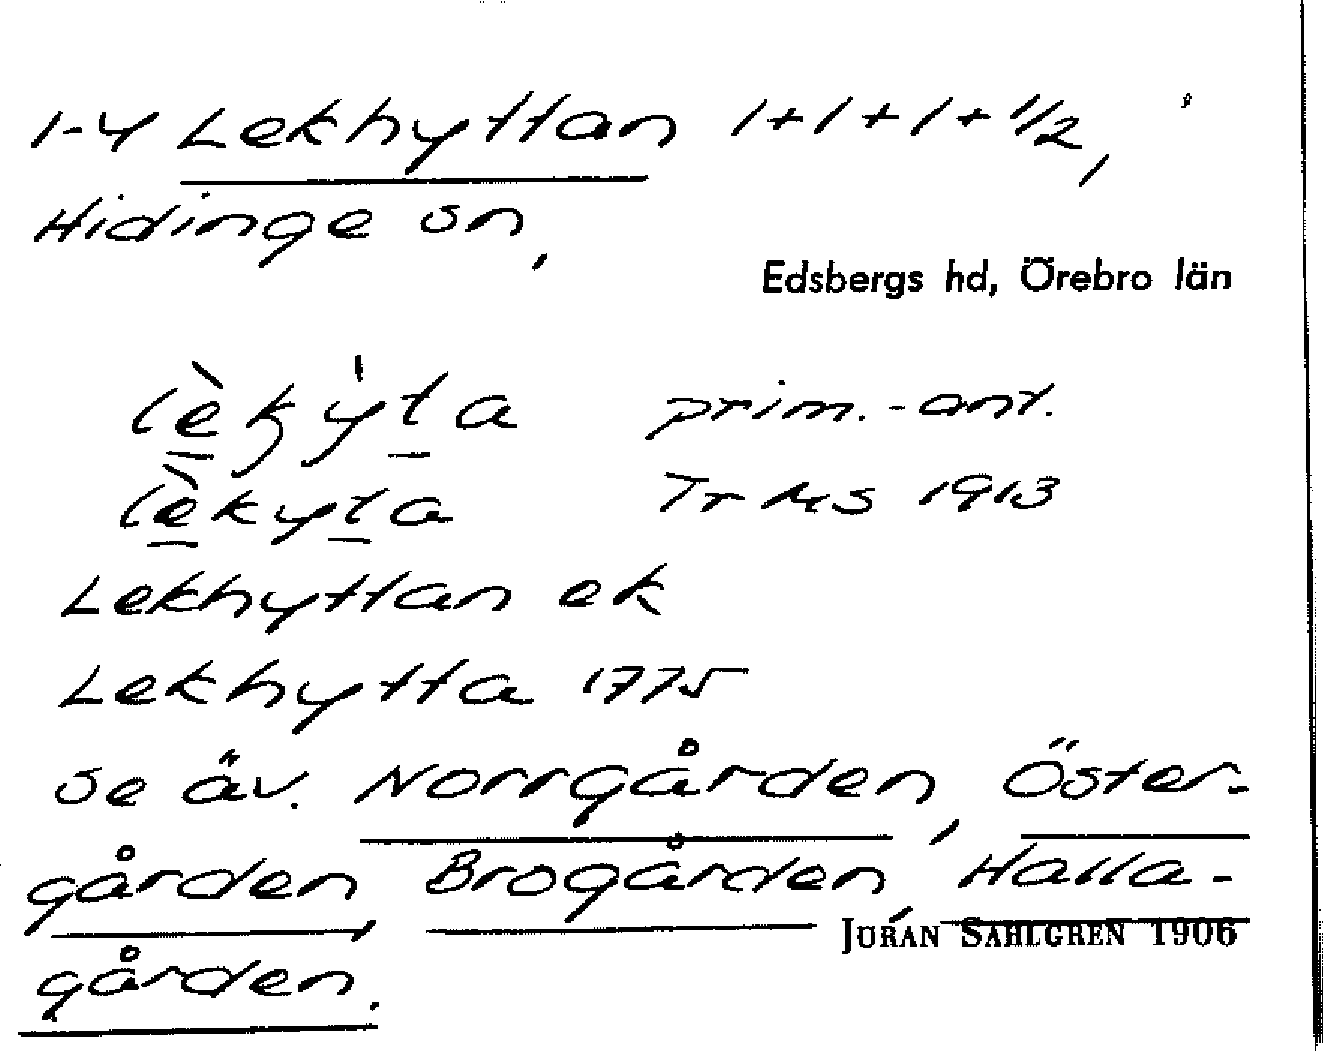 1-4 Lekhyttan 1+1+1+1/2,
Hidinge sn,
Edsbergs hd, Örebro län
lèkẏta prim.-ant.
lèkyta Tr MS 1913
Lekhyttan ek
Lekhytta 1775
se äv. Norrgården, Öster-
gården, Brogården, Halla-
JÖRAN SAHLGREN 1906
gården.